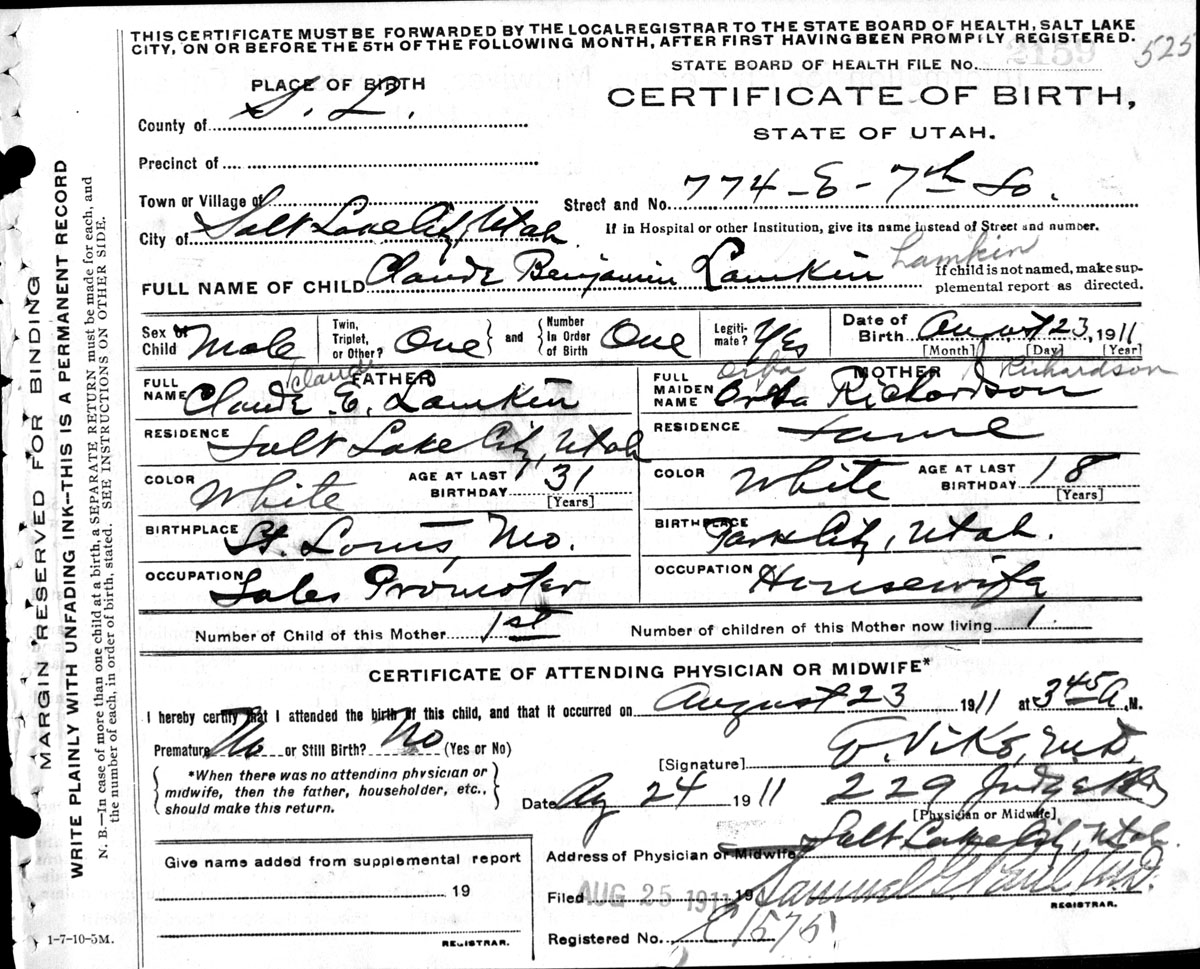 THIS CERTIFICATE MUST BE FORWARDED BY THE LOCALREGISTRAR TO THE STATE BOARD OF HEALTH, SALT LAKE
CITY, ON OR BEFORE THE 5TH OF THE FOLLOWING MONTH, AFTER FIRST HAVING BEEN PROMPILY REGISTERED.
525
STATE BOARD OF HEALTH FILE No.
PLACE OF BIRTH
CERTIFICATE OF BIRTH,
STATE OF UTAH.
County of S. L.
Precinct of
Town or Village of
Street and No. 774-E-7th So.
City of Salt Lake City, Utah
If in Hospital or other Institution, give its name instead of Street and number.
FULL NAME OF CHILD Claude Benjamin Lamkin Lamkin
If child is not named, make sup-
plemental report as directed.
Sex of Child Male
Twin, Triplet, or Other? One and Number In Order of Birth One
Legiti-mate? Yes
Date of Birth August 23, 1911
[Month] [Day] [Year]
FATHER
FULL NAME Claude E. Lamkin
Claude
MOTHER
FULL MAIDEN NAME Orba Richardson
Orba Richardson
RESIDENCE Salt Lake City, Utah
RESIDENCE Same
COLOR White AGE AT LAST BIRTHDAY 31 [Years]
COLOR White AGE AT LAST BIRTHDAY 18 [Years]
BIRTHPLACE St. Louis, Mo.
BIRTHPLACE Park City, Utah.
OCCUPATION Sales Promoter
OCCUPATION Housewife
Number of Child of this Mother 1st Number of children of this Mother now living 1
CERTIFICATE OF ATTENDING PHYSICIAN OR MIDWIFE*
I hereby certify that I attended the birth of this child, and that it occurred on August 23 1911 at 3 45 A. M.
Premature No or Still Birth? No (Yes or No)
*When there was no attending physician or
midwife, then the father, householder, etc.,
should make this return.
[Signature] Vike, M.D.
Date Ag 24 1911 229 Judge Bldg
[Physician or Midwife]
Address of Physician or Midwife Salt Lake City, Utah.
Give name added from supplemental report
19
REGISTRAR.
Filed AUG 25 1911 19 Samuel G. Paul M.D.
REGISTRAR.
Registered No. 1575
1-7-10-5M.
MARGIN RESERVED FOR BINDING
WRITE PLAINLY WITH UNFADING INK--THIS IS A PERMANENT RECORD
N. B.—In case of more than one child at a birth, a SEPARATE RETURN must be made for each, and
the number of each, in order of birth, stated. SEE INSTRUCTIONS ON OTHER SIDE.